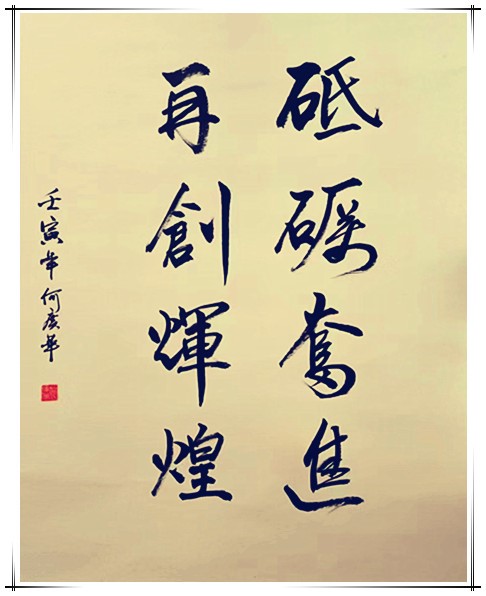 砥礪奮進
再創輝煌
壬寅年何廣華